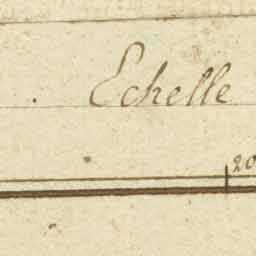 Echelle
20